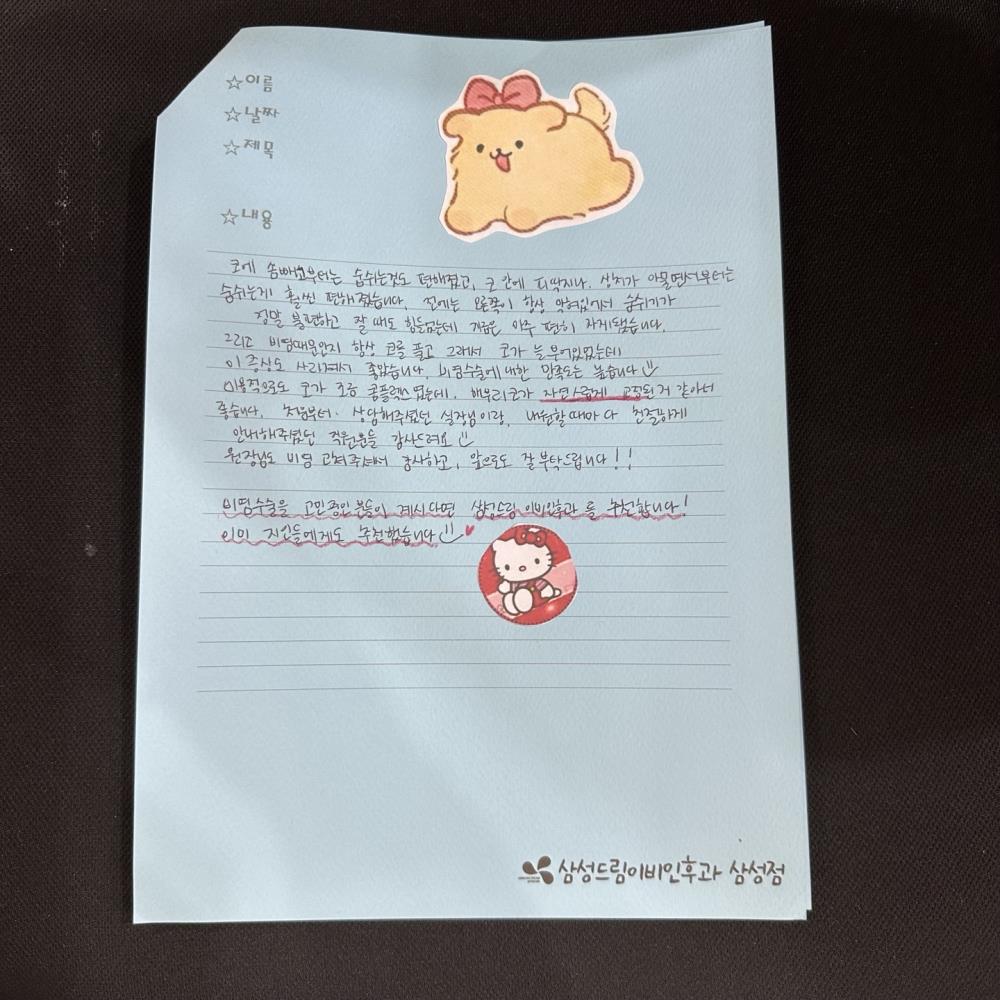 ☆이름
☆날짜
☆제목
☆내용
코에 솜빼고부터는 숨쉬는것도 편해졌고, 코 안에 피딱지나, 상처가 아물면서부터는
숨쉬는게 훨씬 편해졌습니다. 전에는 오른쪽이 항상 막혀있어서 숨쉬기가
정말 불편하고 잘 때도 힘들었는데 지금은 아주 편히 자게됐습니다.
그리고 비염때문인지 항상 코를 풀고 그래서 코가 늘 부어있었는데
이 증상도 사라져서 좋았습니다. 비염수술에 대한 만족도는 높습니다
미용적으로도 코가 조금 콤플렉스였는데, 매부리코가 자연스럽게 교정된거 같아서
좋습니다. 처음부터 상담해주셨던 실장님이랑, 내원할때마다 친절하게
안내해주셨던 직원분들 감사드려요
원장님도 비염 고쳐주셔서 감사하고, 앞으로도 잘 부탁드립니다!!
비염수술을 고민중인 분들이 계시다면 삼성드림 이비인후과 를 추천합니다!
이미 지인들에게도 추천했습니다
삼성드림이비인후과 삼성점